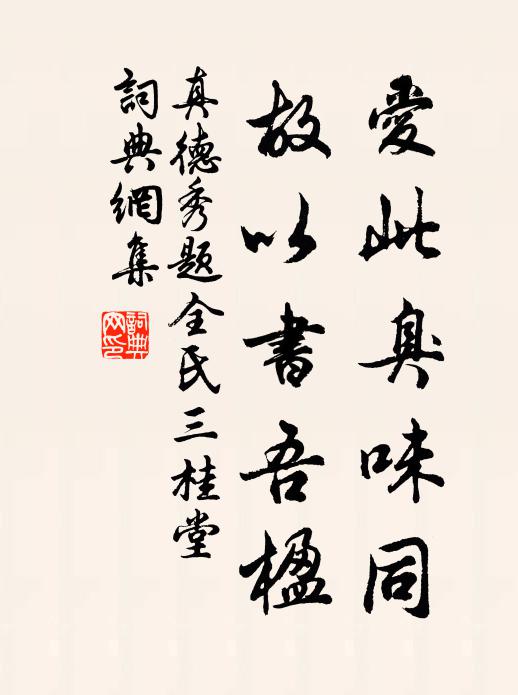 愛此臭味同
故以書吾楹
真德秀題全氏三桂堂
詞典網集
詞典網印